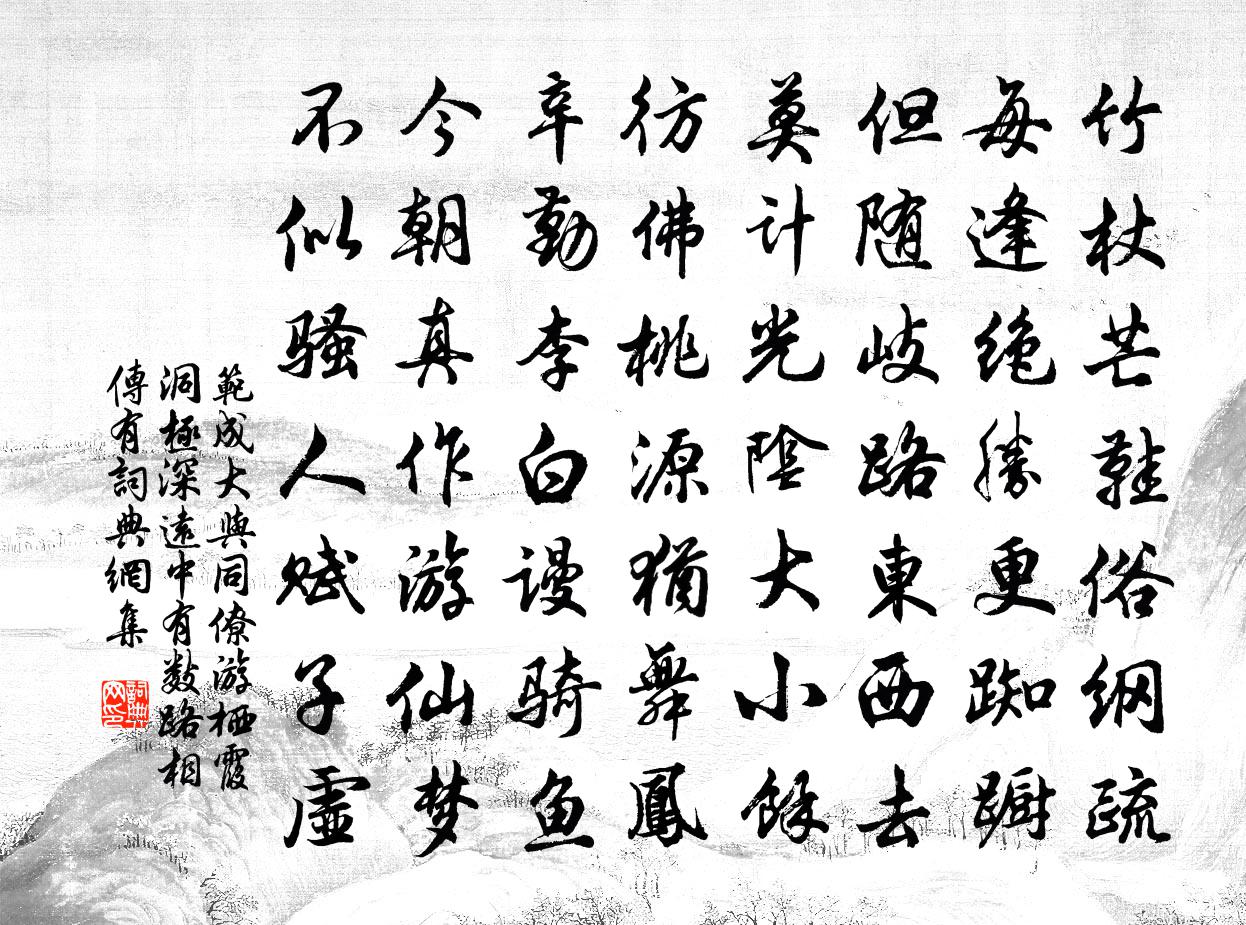 竹杖芒鞋俗網疏
每逢绝勝更踟蹰
但随歧路東西去
莫計光陰大小餘
彷佛桃源猶舞鳳
辛勤李白謾骑鱼
今朝真作游仙梦
不似骚人赋子虚
範成大與同僚游栖霞
洞極深遠中有数路相
傳有詞典網集
詞典
网印